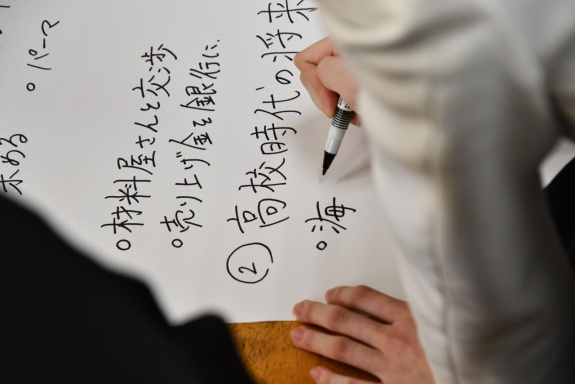 。パーマ
。材料屋さんと交渉
。売り上げ金を銀行に
② 高校時代の将来
。海